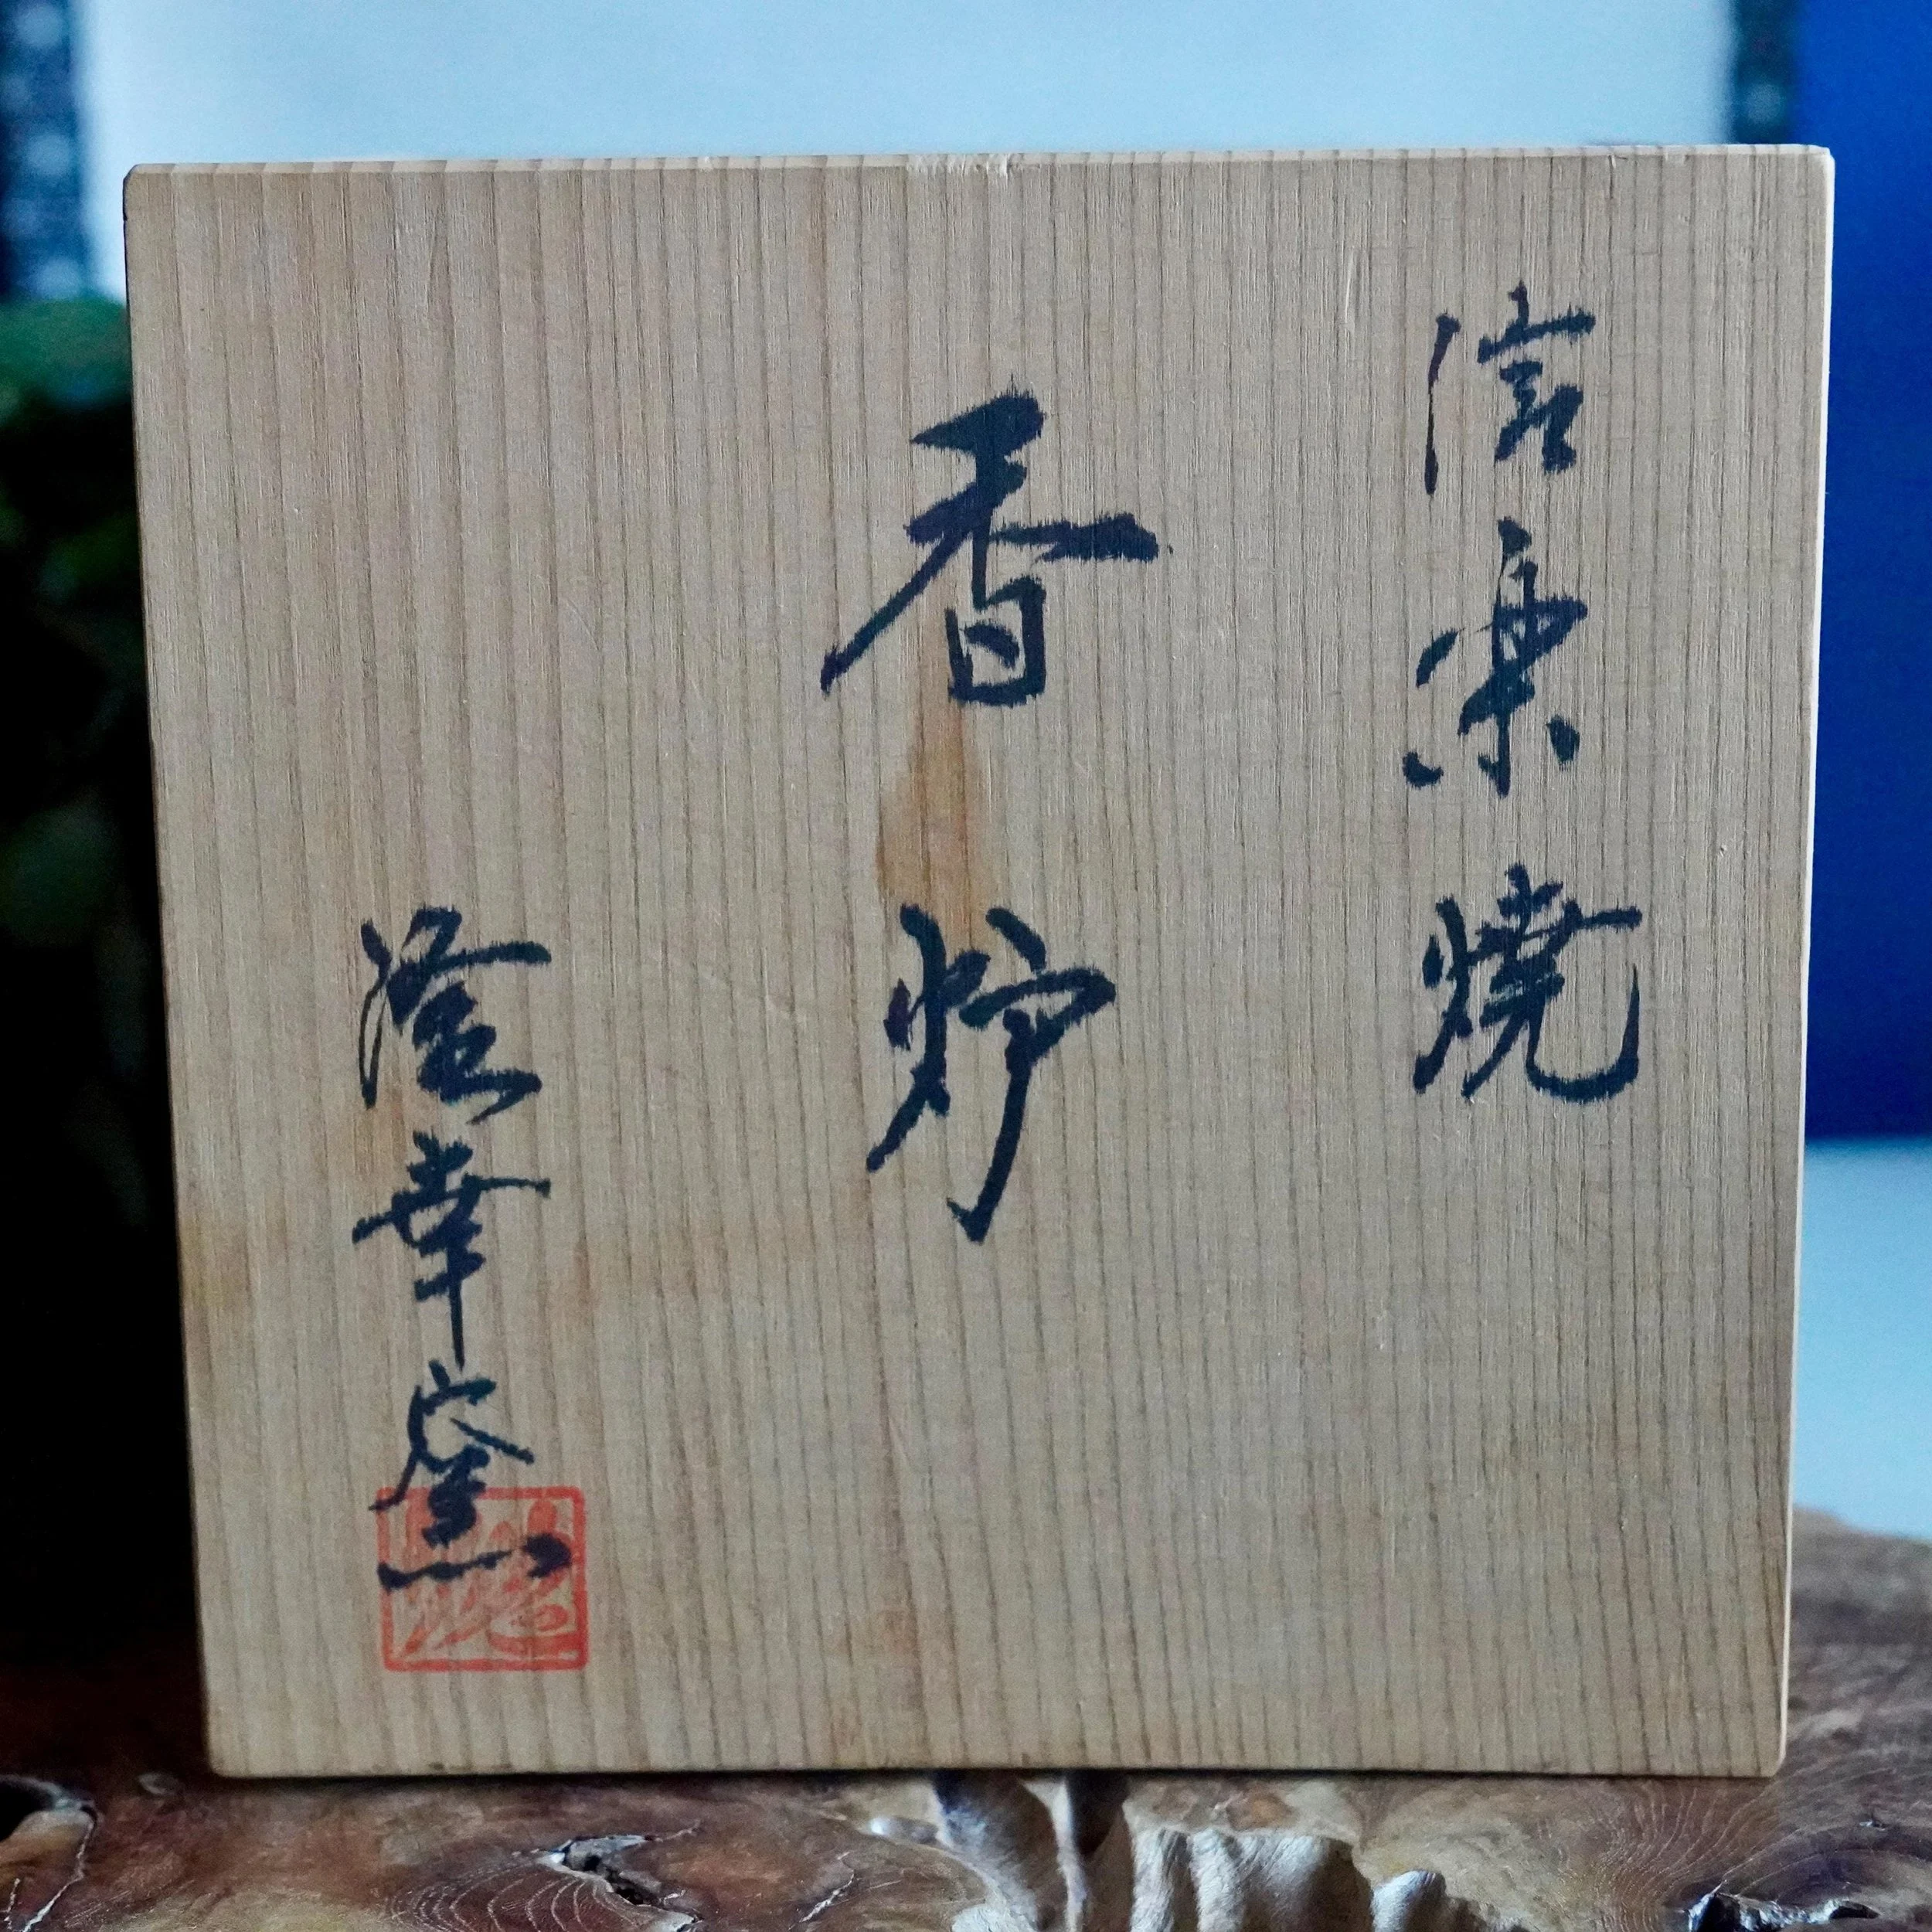 信楽焼
香炉
隆幸窯